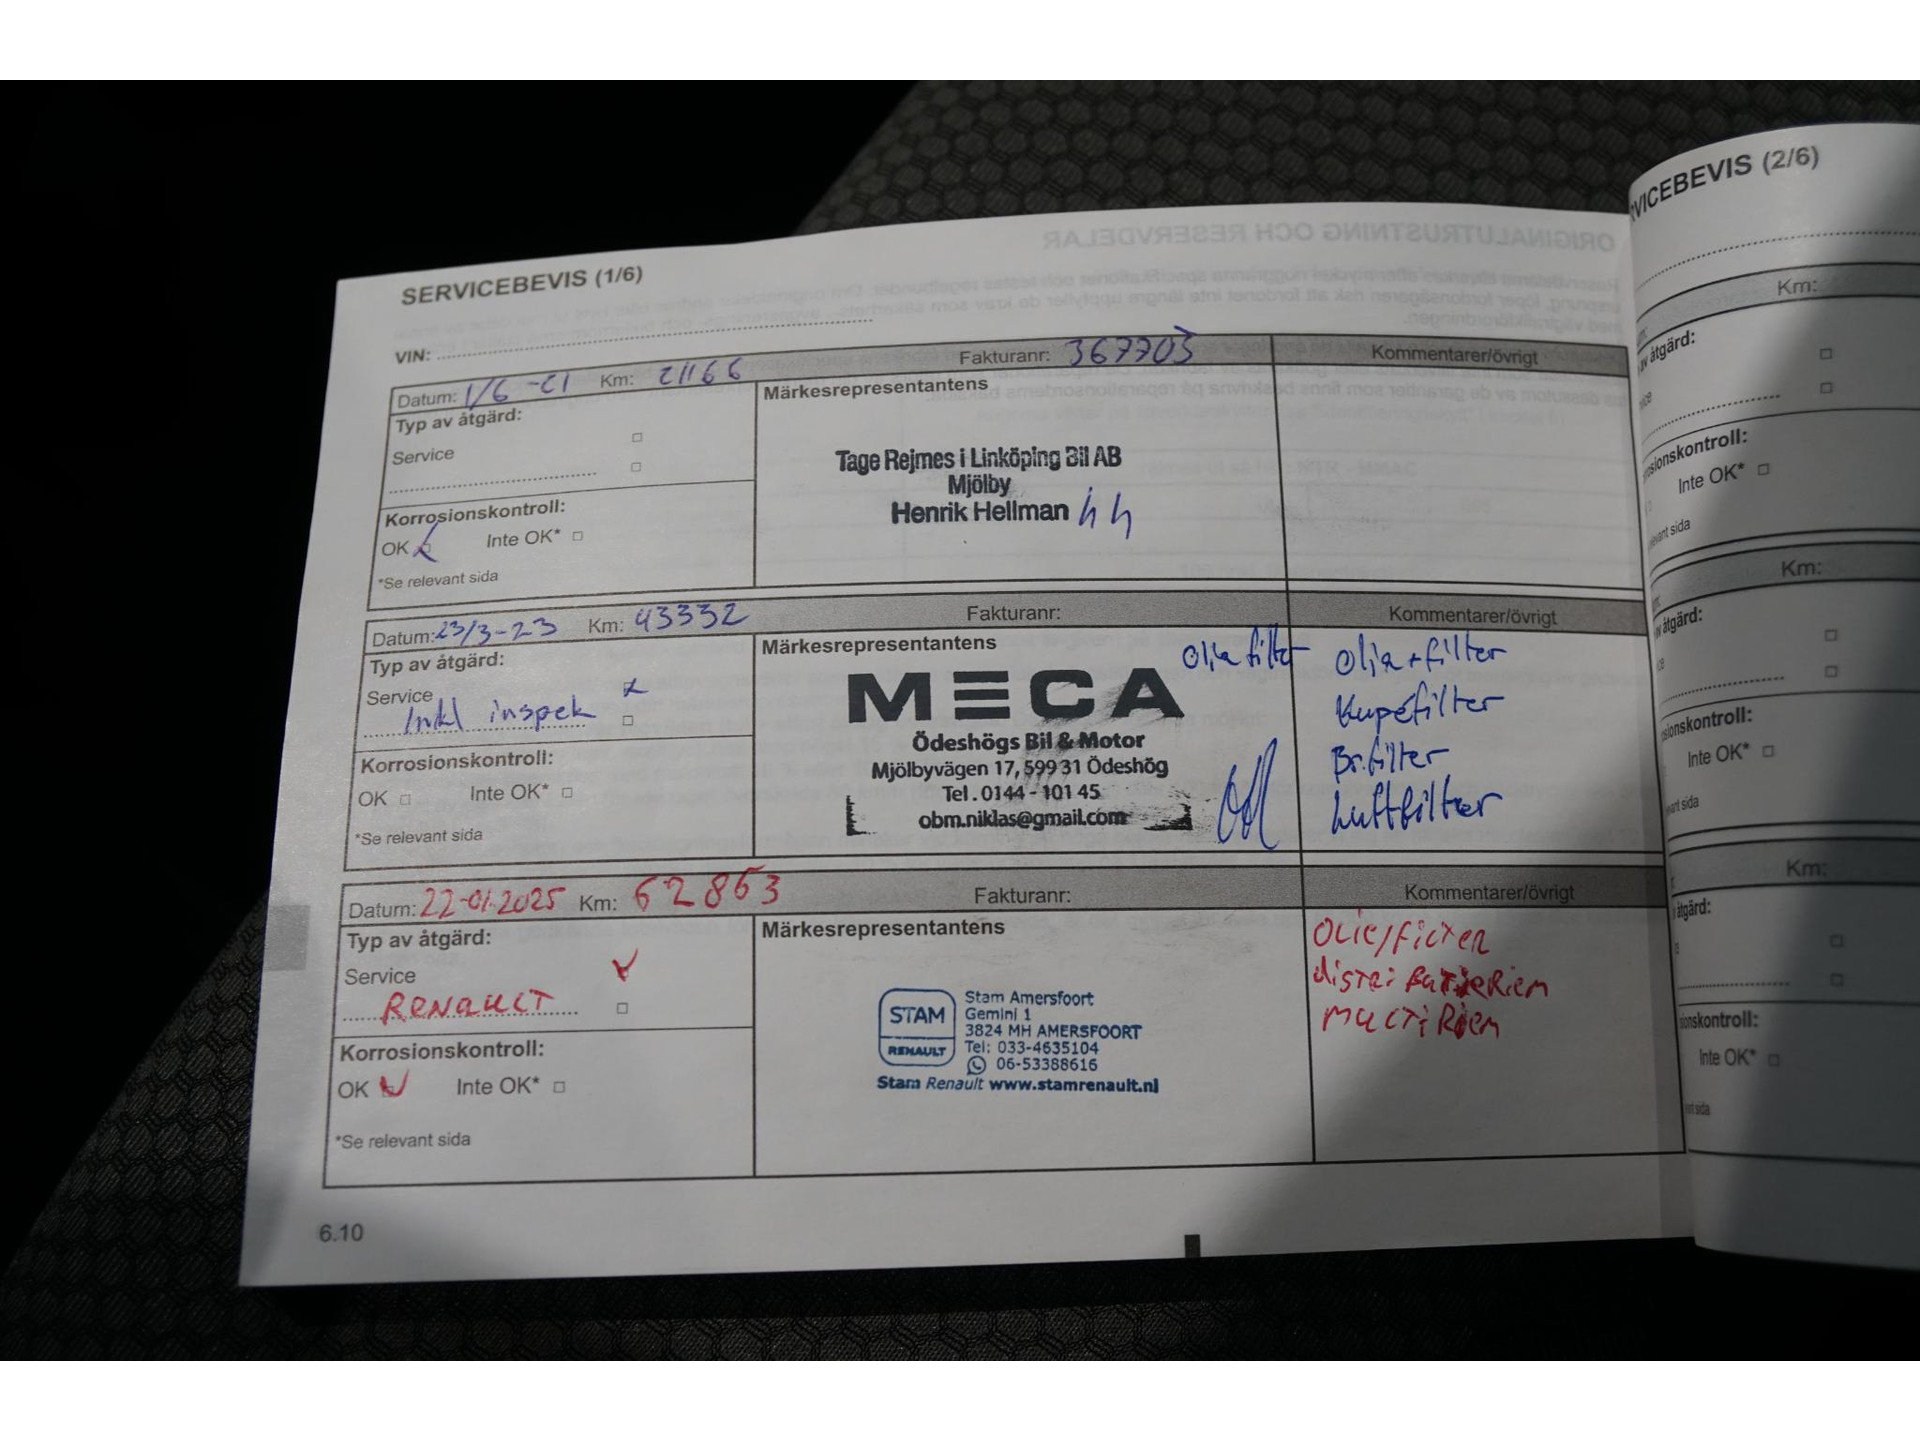 SERVICEBEVIS (1/6)
VIN:
Datum: 1/6 -21 Km: 21166 Fakturanr: 367703 Kommentarer/övrigt
Typ av åtgärd:
Service
Märkesrepresentantens
Tage Rejmes i Linköping Bil AB
Mjölby
Henrik Hellman
Korrosionskontroll:
OK Inte OK*
*Se relevant sida
Datum: 23/3-23 Km: 43332 Fakturanr: Kommentarer/övrigt
Typ av åtgärd:
Service
Inkl inspek
Märkesrepresentantens
Olja filter
MECA
Ödeshögs Bil & Motor
Mjölbyvägen 17, 599 31 Ödeshög
Tel. 0144 - 101 45
obm.niklas@gmail.com
Olja + filter
Kupefilter
Br.filter
Luftfilter
Korrosionskontroll:
OK Inte OK*
*Se relevant sida
Datum: 22-01-2025 Km: 62863 Fakturanr: Kommentarer/övrigt
Typ av åtgärd:
Service
RENAULT
Märkesrepresentantens
STAM
RENAULT
Stam Amersfoort
Gemini 1
3824 MH AMERSFOORT
Tel: 033-4635104
06-53388616
Stam Renault www.stamrenault.nl
OLIE/FILTER
DISTRIBUTIERIEM
MULTIRIEM
Korrosionskontroll:
OK Inte OK*
*Se relevant sida
6.10
VICEBEVIS (2/6)
Km:
åtgärd:
sionskontroll:
Inte OK*
vant sida
Km:
åtgärd:
sionskontroll:
Inte OK*
vant sida
Km:
åtgärd:
sionskontroll:
Inte OK*
nt sida